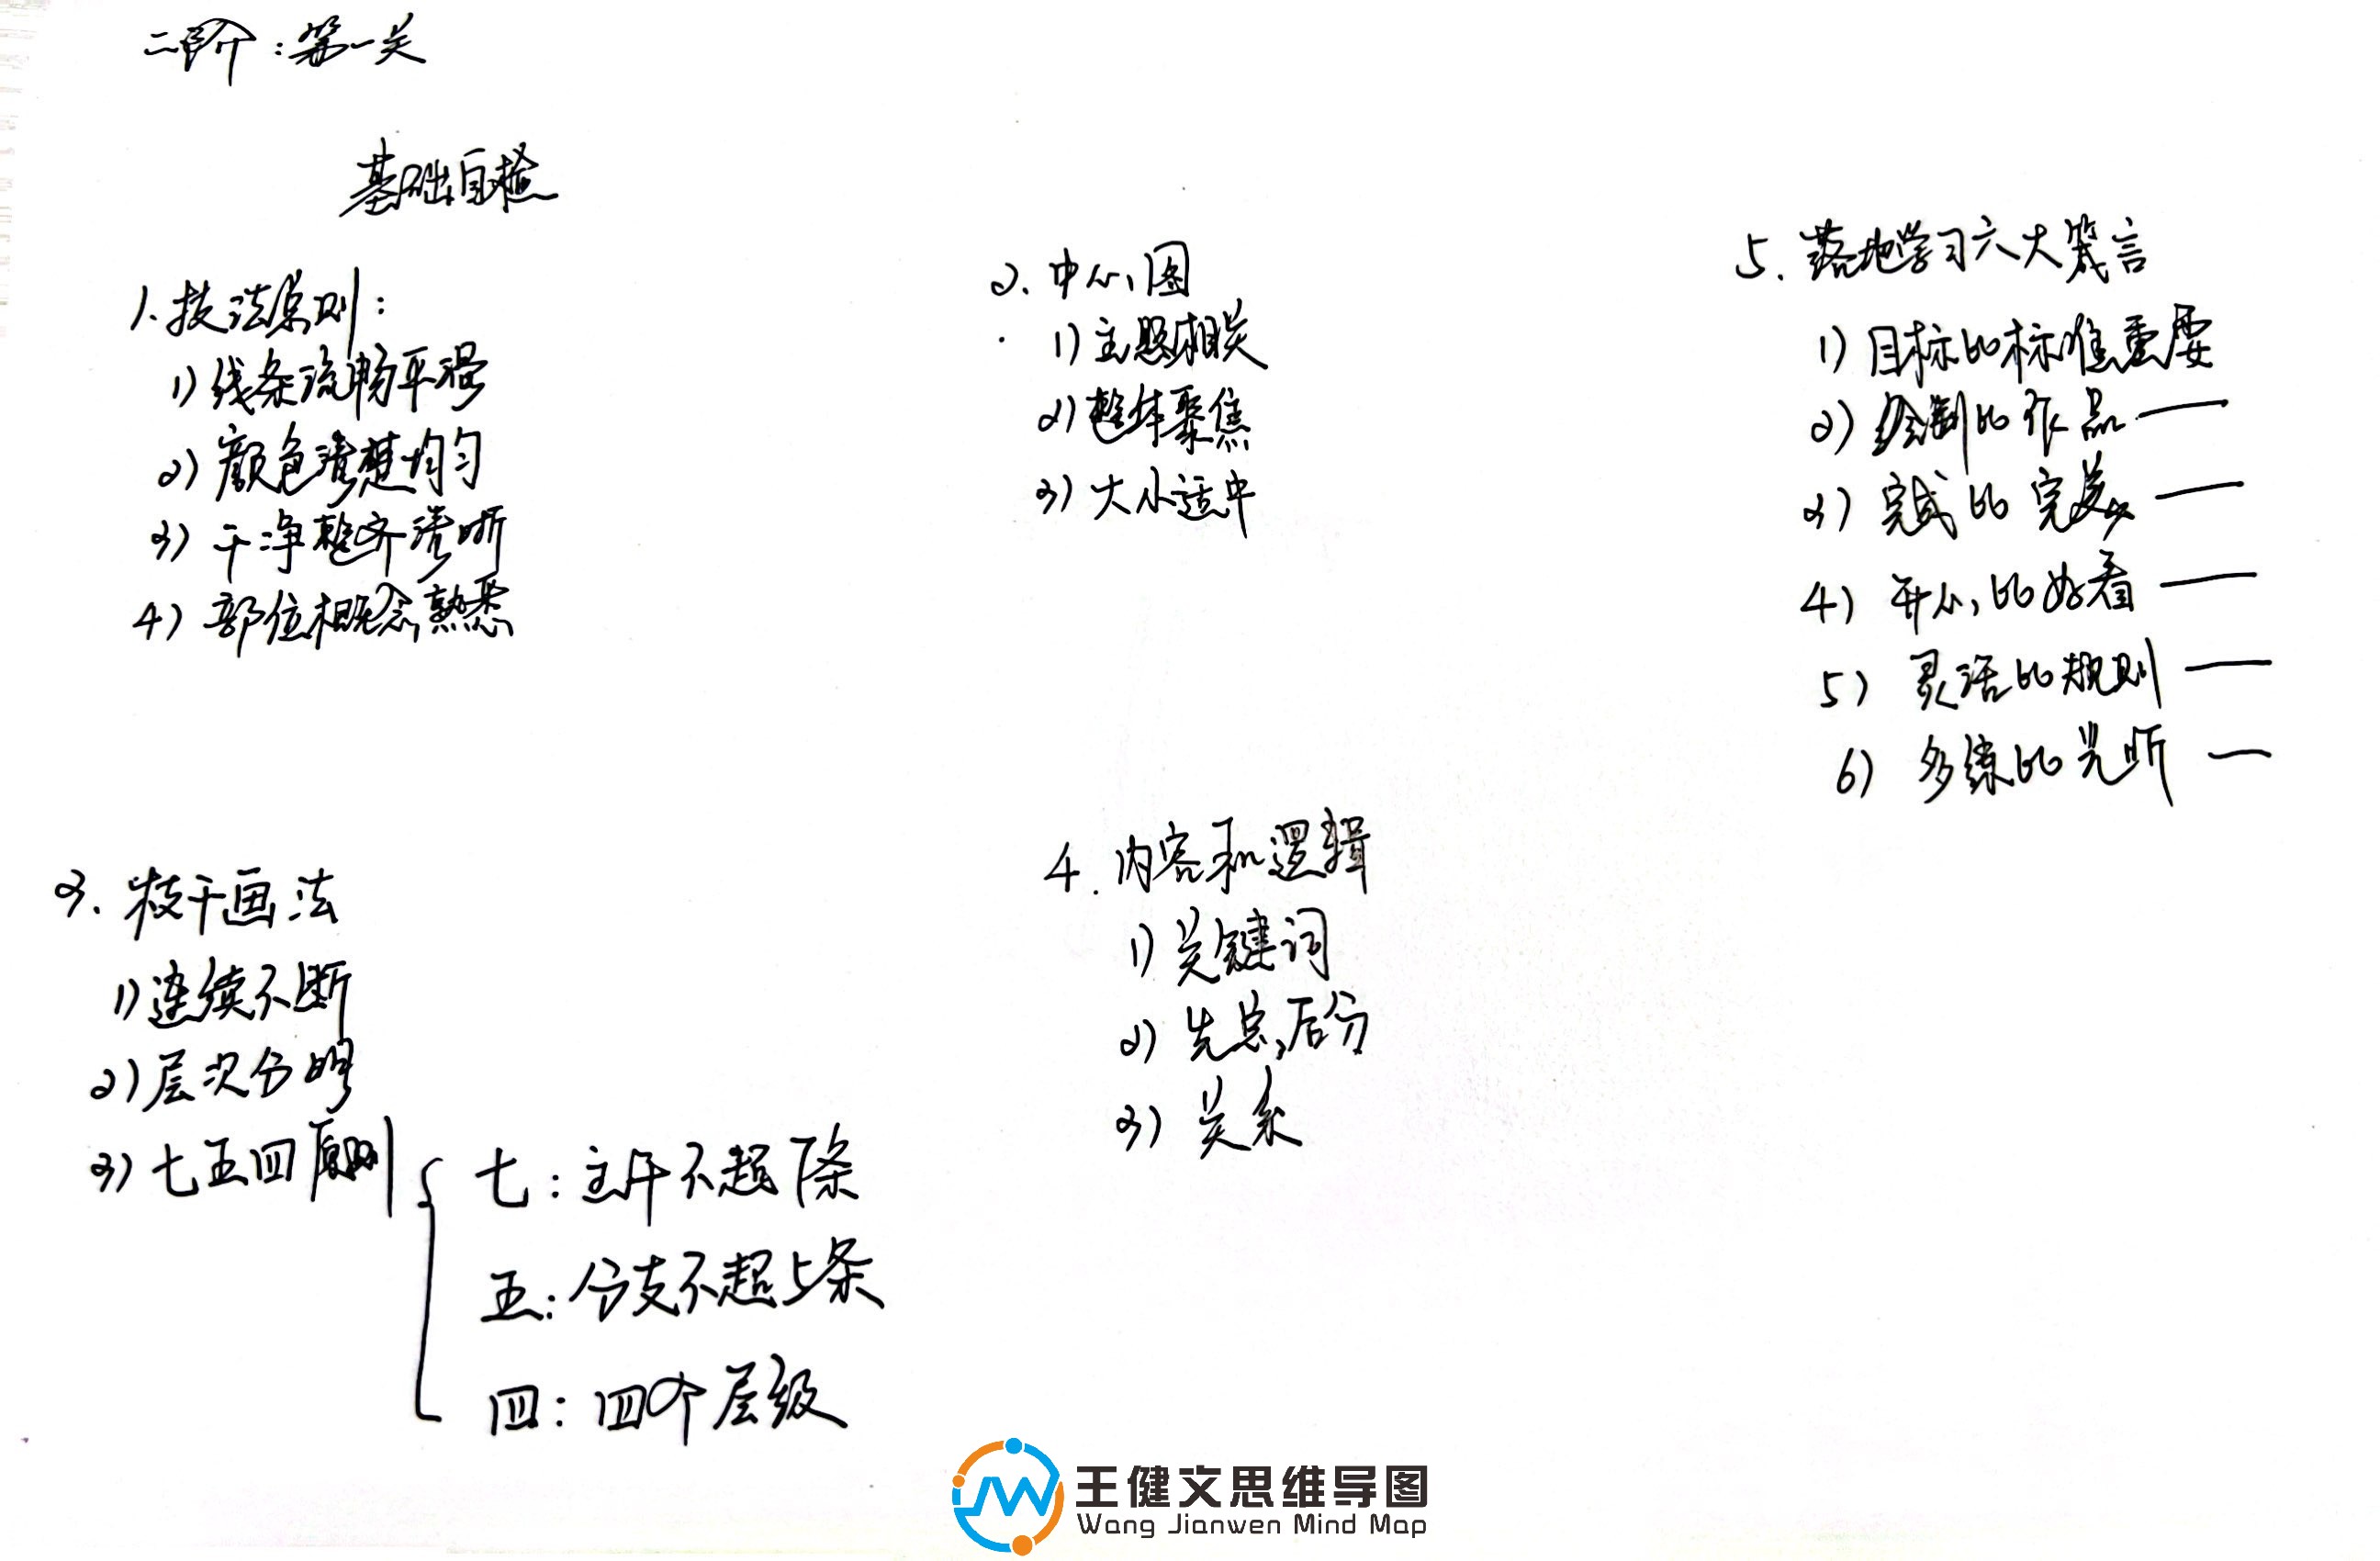 二阶：第一关
基础自检
1.技法原则：
1)线条流畅平滑
2)颜色清楚均匀
3)干净整齐清晰
4)部位概念熟悉
2.中心图
1)主题相关
2)整体聚焦
3)大小适中
3.枝干画法
1)连续不断
2)层次分明
3)七五四原则
七：主干不超7条
五：分支不超5条
四：四个层级
4.内容和逻辑
1)关键词
2)先总后分
3)关系
5.落地学习六大箴言
1)目标比标准重要
2)绘制比作品——
3)完成比完美——
4)开心比好看——
5)灵活比规则——
6)多练比光听——
王健文思维导图
Wang Jianwen Mind Map